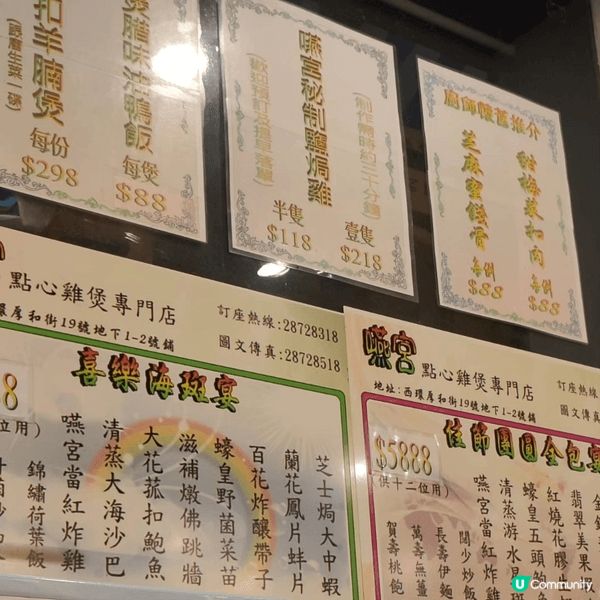 扣羊腩煲
每份
$298
煲腊味油鴨飯
每煲
$88
嚥宮秘制鹽焗雞
(制作需時約三十分鐘)
(歡迎預訂及提早落單)
半隻
$118
壹隻
$218
廚師懷舊推介
甜梅菜扣肉
每例
$88
芝麻蜜餞骨
每例
$88
點心雞煲專門店
訂座熱線:28728318
環厚和街19號地下1-2號鋪
圖文傳真:28728518
喜樂海斑宴
8
位用)
芝士焗大中蝦
蘭花鳳片蚌片
百花炸釀帶子
蠔皇野菌菜苗
滋補燉佛跳牆
大花菰扣鮑魚
清蒸大海沙巴
嚥宮當紅炸雞
錦繡荷葉飯
嚥宮
點心雞煲專門店
訂座熱線
地址:西環厚和街19號地下1-2號鋪
圖文傳真
佳節團圓全包宴
$5888
(供十二位用)
翡翠美果
紅燒花膠
蠔皇五頭
清蒸游水
嚥宮當紅炸
闔少炒飯
長壽伊麵
萬壽無薑
賀壽桃飽
U Community